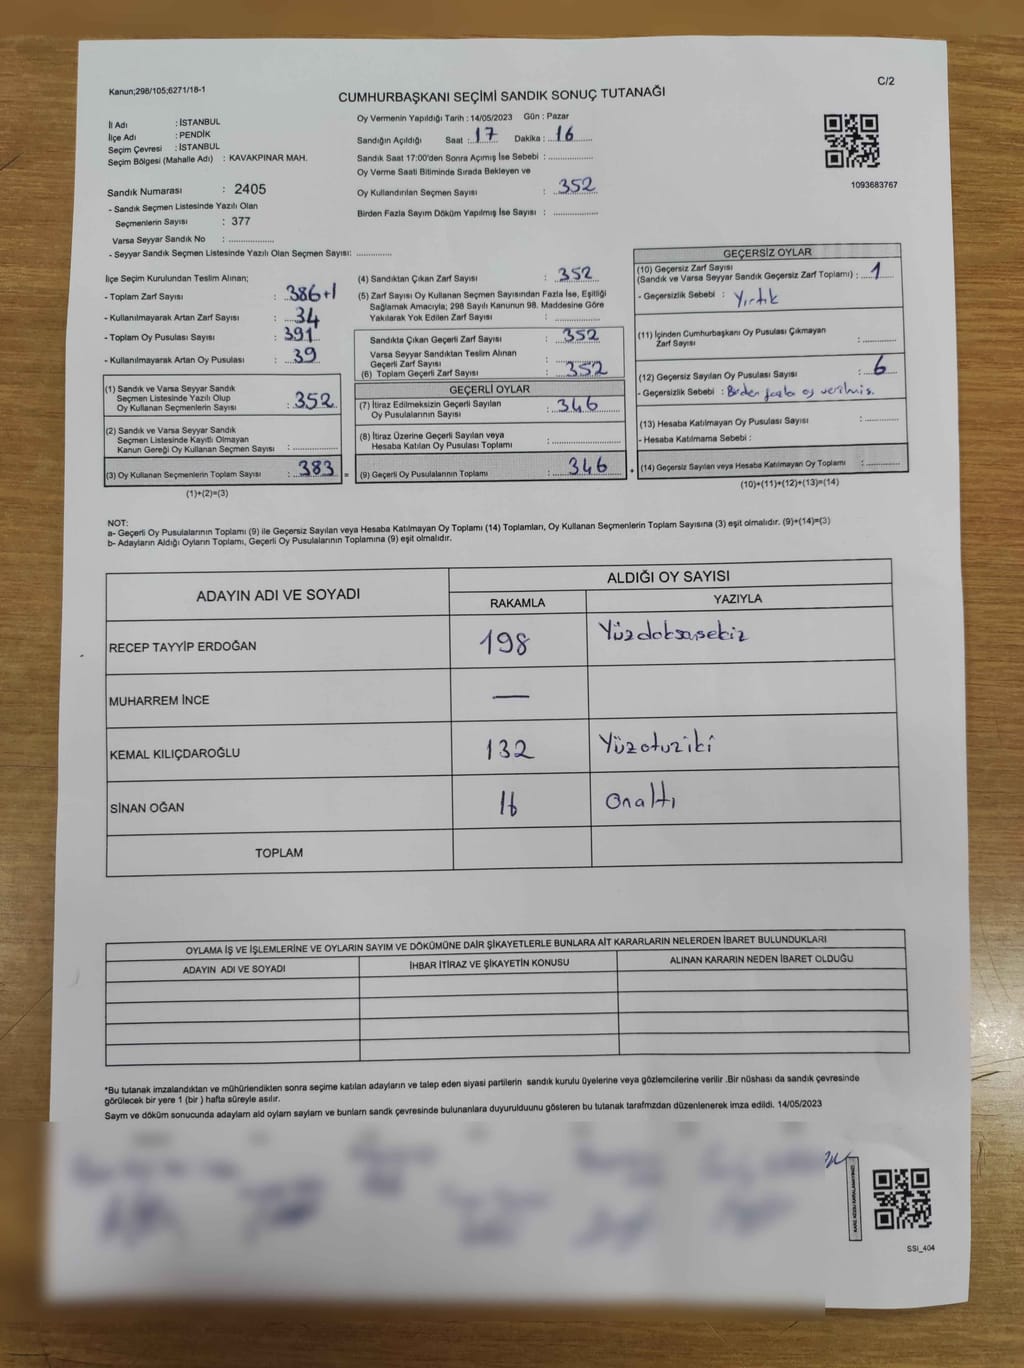 Kanun;298/105;6271/18-1
C/2
CUMHURBAŞKANI SEÇİMİ SANDIK SONUÇ TUTANAĞI
İl Adı : İSTANBUL
İlçe Adı : PENDİK
Seçim Çevresi : İSTANBUL
Seçim Bölgesi (Mahalle Adı) : KAVAKPINAR MAH.
Sandık Numarası : 2405
- Sandık Seçmen Listesinde Yazılı Olan
Seçmenlerin Sayısı : 377
Varsa Seyyar Sandık No : ..................
- Seyyar Sandık Seçmen Listesinde Yazılı Olan Seçmen Sayısı: .............
Oy Vermenin Yapıldığı Tarih : 14/05/2023 Gün : Pazar
Sandığın Açıldığı Saat : 17 Dakika : 16
Sandık Saat 17:00'den Sonra Açımış İse Sebebi : ..............
Oy Verme Saati Bitiminde Sırada Bekleyen ve
Oy Kullandırılan Seçmen Sayısı : 352
Birden Fazla Sayım Döküm Yapılmış İse Sayısı : ..............
1093683767
İlçe Seçim Kurulundan Teslim Alınan;
- Toplam Zarf Sayısı : 386+1
- Kullanılmayarak Artan Zarf Sayısı : 34
- Toplam Oy Pusulası Sayısı : 391
- Kullanılmayarak Artan Oy Pusulası : 39
(1) Sandık ve Varsa Seyyar Sandık
Seçmen Listesinde Yazılı Olup
Oy Kullanan Seçmenlerin Sayısı : 352
(2) Sandık ve Varsa Seyyar Sandık
Seçmen Listesinde Kayıtlı Olmayan
Kanun Gereği Oy Kullanan Seçmen Sayısı : ..............
(3) Oy Kullanan Seçmenlerin Toplam Sayısı : 383 =
(1)+(2)=(3)
(4) Sandıktan Çıkan Zarf Sayısı : 352
(5) Zarf Sayısı Oy Kullanan Seçmen Sayısından Fazla İse, Eşitliği
Sağlamak Amacıyla; 298 Sayılı Kanunun 98. Maddesine Göre
Yakılarak Yok Edilen Zarf Sayısı : ..............
Sandıkta Çıkan Geçerli Zarf Sayısı : 352
Varsa Seyyar Sandıktan Teslim Alınan
Geçerli Zarf Sayısı : ..............
(6) Toplam Geçerli Zarf Sayısı : 352
GEÇERLİ OYLAR
(7) İtiraz Edilmeksizin Geçerli Sayılan
Oy Pusulalarının Sayısı : 346
(8) İtiraz Üzerine Geçerli Sayılan veya
Hesaba Katılan Oy Pusulası Toplamı : ..............
(9) Geçerli Oy Pusulalarının Toplamı : 346 +
GEÇERSİZ OYLAR
(10) Geçersiz Zarf Sayısı
(Sandık ve Varsa Seyyar Sandık Geçersiz Zarf Toplamı) : 1
- Geçersizlik Sebebi : Yırtık
(11) İçinden Cumhurbaşkanı Oy Pusulası Çıkmayan
Zarf Sayısı : ..............
(12) Geçersiz Sayılan Oy Pusulası Sayısı : 6
- Geçersizlik Sebebi : Birden fazla oy verilmiş.
(13) Hesaba Katılmayan Oy Pusulası Sayısı : ..............
- Hesaba Katılmama Sebebi :
(14) Geçersiz Sayılan veya Hesaba Katılmayan Oy Toplamı : ..............
(10)+(11)+(12)+(13)=(14)
NOT:
a- Geçerli Oy Pusulalarının Toplamı (9) ile Geçersiz Sayılan veya Hesaba Katılmayan Oy Toplamı (14) Toplamları, Oy Kullanan Seçmenlerin Toplam Sayısına (3) eşit olmalıdır. (9)+(14)=(3)
b- Adayların Aldığı Oyların Toplamı, Geçerli Oy Pusulalarının Toplamına (9) eşit olmalıdır.
ADAYIN ADI VE SOYADI ALDIĞI OY SAYISI
RAKAMLA YAZIYLA
RECEP TAYYİP ERDOĞAN 198 Yüzdoksansekiz
MUHARREM İNCE —
KEMAL KILIÇDAROĞLU 132 Yüzotuziki
SİNAN OĞAN 16 Onaltı
TOPLAM
OYLAMA İŞ VE İŞLEMLERİNE VE OYLARIN SAYIM VE DÖKÜMÜNE DAİR ŞİKAYETLERLE BUNLARA AİT KARARLARIN NELERDEN İBARET BULUNDUKLARI
ADAYIN ADI VE SOYADI İHBAR İTİRAZ VE ŞİKAYETİN KONUSU ALINAN KARARIN NEDEN İBARET OLDUĞU
*Bu tutanak imzalandıktan ve mühürlendikten sonra seçime katılan adayların ve talep eden siyasi partilerin sandık kurulu üyelerine veya gözlemcilerine verilir .Bir nüshası da sandık çevresinde
görülecek bir yere 1 (bir ) hafta süreyle asılır.
Saym ve döküm sonucunda adaylarn ald oylarn saylarn ve bunlarn sandk çevresinde bulunanlara duyurulduunu gösteren bu tutanak tarafmzdan düzenlenerek imza edildi. 14/05/2023
SSI_404